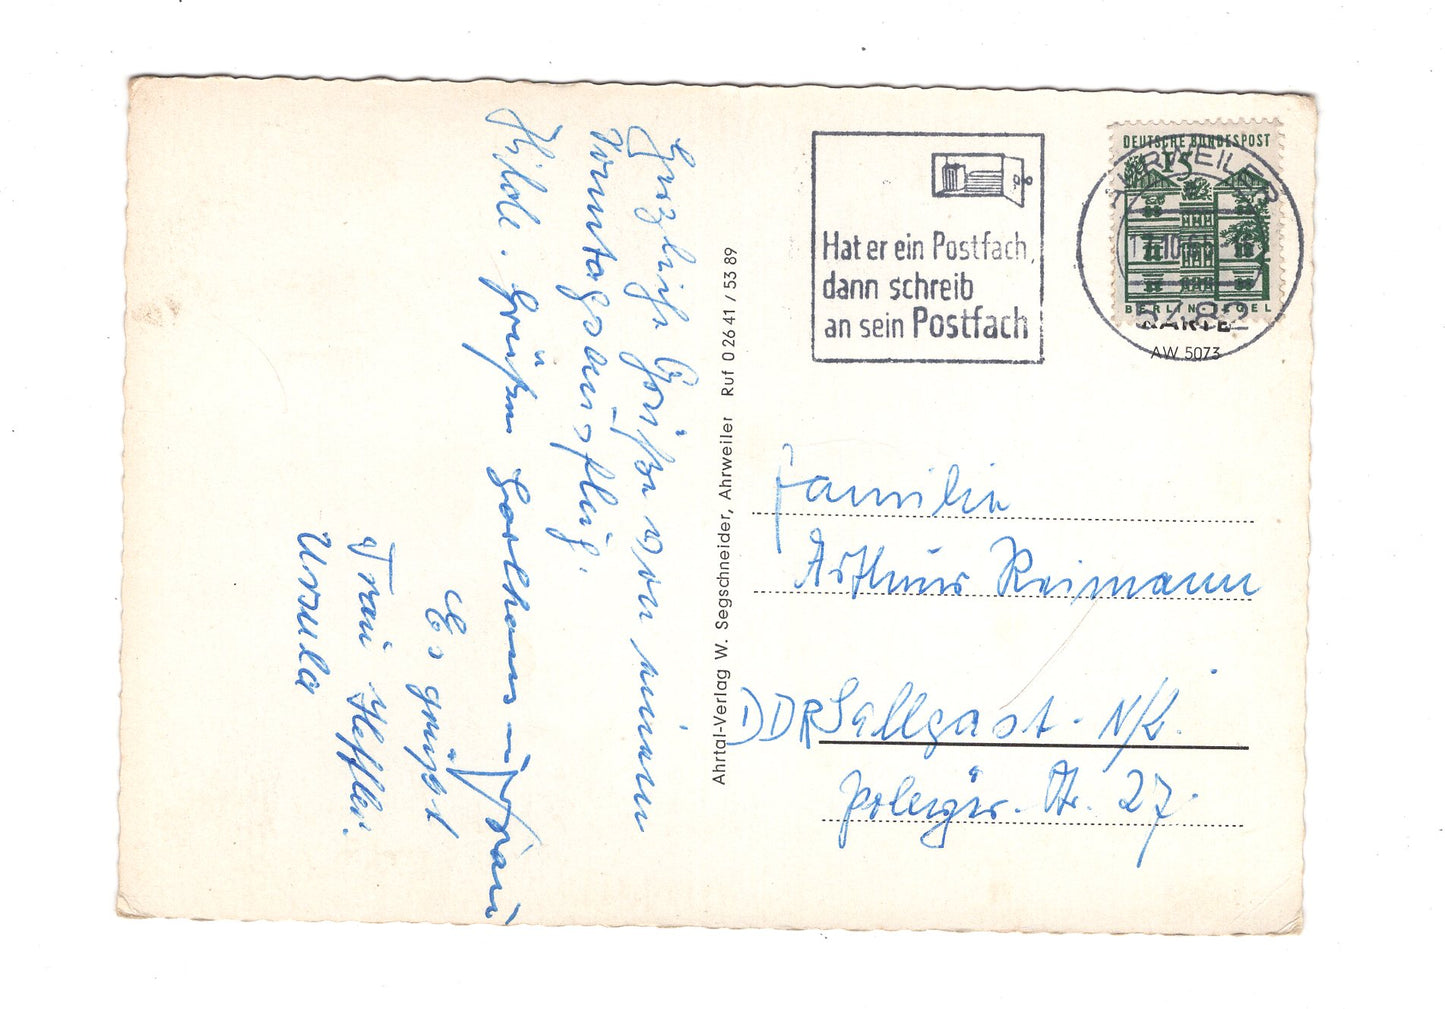 Herzliche Grüße von einem
Sonntagsausflug.
Hilde. Grüßen
Frau
Es grüßt
Frau Heffler.
Ursula
Ahrtal-Verlag W. Segschneider, Ahrweiler Ruf 0 26 41 / 53 89
Hat er ein Postfach,
dann schreib
an sein Postfach
DEUTSCHE BUNDESPOST
15
BERLIN TEGEL
AHRWEILER
5482
KARTE
AW 5073
Familie
Arthur Reimann
DDR Sallgast - N/L.
Str. 27.